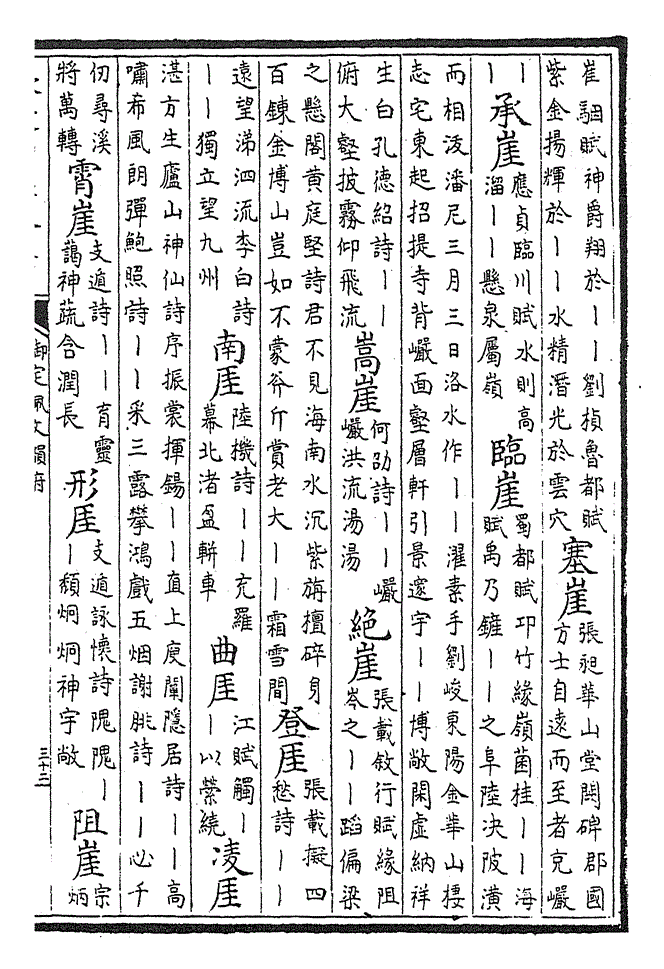 崔駰賦神爵翔於｜｜劉楨魯都賦
紫金揚輝於｜｜水精潛光於雲穴
塞崖
張昶華山堂闕碑郡國
方士自遠而至者充巖
｜
｜｜
承崖
應貞臨川賦水則高
溜｜｜懸泉屬嶺
臨崖
蜀都賦邛竹緣嶺菌桂｜｜海
賦禹乃鏟｜｜之阜陸決陂潢
而相泼潘尼三月三日洛水作｜｜濯素手劉峻東陽金華山棲
志宅東起招提寺背巖面壑層軒引景邃宇｜｜博敞閑虛納祥
生白孔德紹詩｜｜
俯大壑披霧仰飛流
嵩崖
何劭詩｜｜巖
巖洪流湯湯
絕崖
張載敘行賦緣阻
岑之｜｜蹈偏梁
之懸閣黄庭堅詩君不見海南水沉紫旃檀碎身
百鍊金博山豈如不蒙斧斤賞老大｜｜霜雪間
登厓
張載擬四
愁詩｜｜
遠望涕泗流李白詩
｜｜獨立望九州
南厓
陸機詩｜｜充羅
幕北渚盈軿車
曲厓
江賦觸｜
｜以縈繞
凌厓
湛方生廬山神仙詩序振裳揮錫｜｜直上庾闡隱居詩｜｜高
嘯希風朗彈鮑照詩｜｜采三露攀鴻戲五烟謝朓詩｜｜必千
仞尋溪
將萬轉
霄崖
支遁詩｜｜育靈
藹神蔬含潤長
形厓
支遁詠懷詩隗隗｜
｜頹炯炯神宇敞
阻崖
宗
炳
御定佩文韻府
三十三